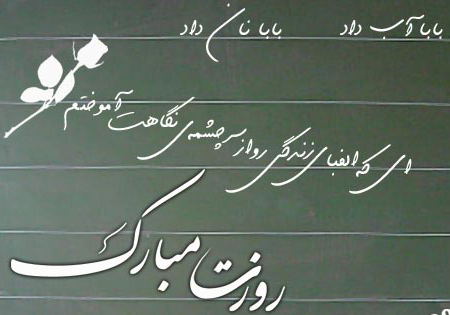 بابا آب داد    بابا نان داد
ای که الفبای زندگی رو از سرچشمه‌ی نگاهت آموختم
روزت مبارک